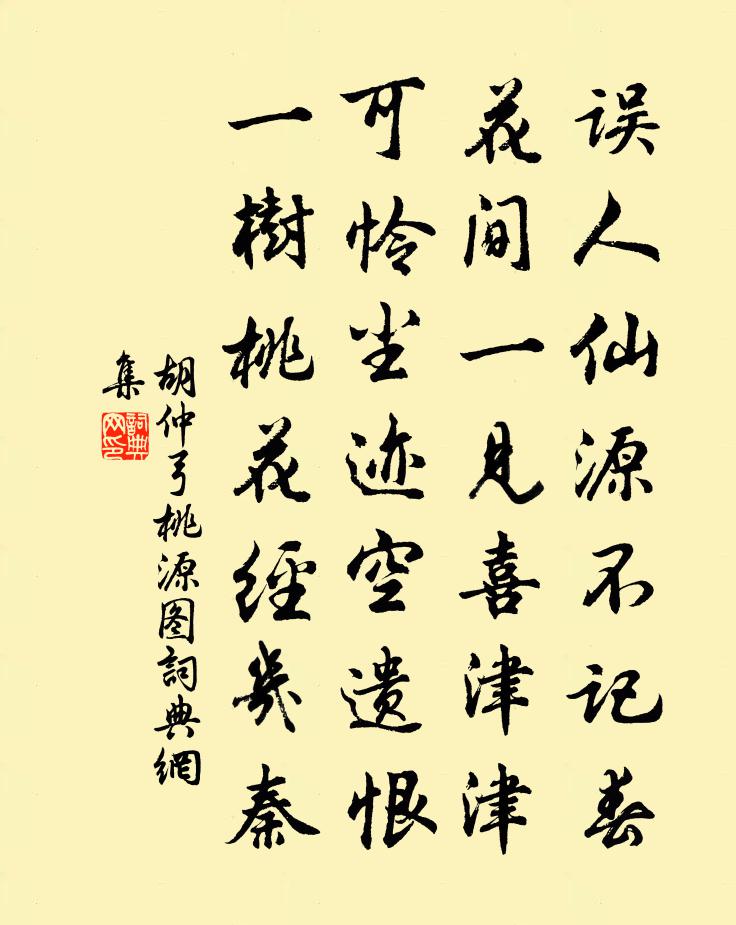 误人仙源不记春
花间一见喜津津
可怜尘迹空遗恨
一樹桃花經幾秦
胡仲弓桃源图詞典網
集
詞典
网印